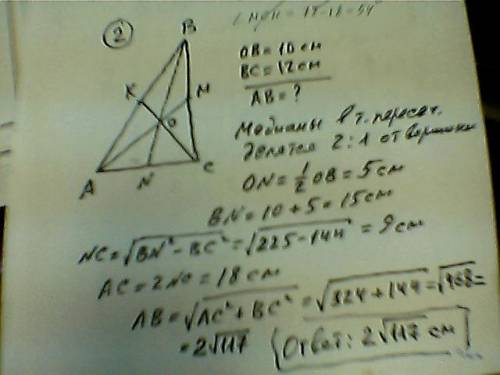 ∠MOH = 18·18 = 54
2
B
OB = 10 см
BC = 12 см
K
M
AB = ?
O
Медианы в т. пересеч.
делятся 2:1 от вершины
A
N
C
ON = 1/2 OB = 5 см
BN = 10 + 5 = 15 см
NC = √(BN² - BC²) = √(225 - 144) = 9 см
AC = 2NC = 18 см
AB = √(AC² + BC²) = √(324 + 144) = √468 =
= 2√117
Ответ: 2√117 см